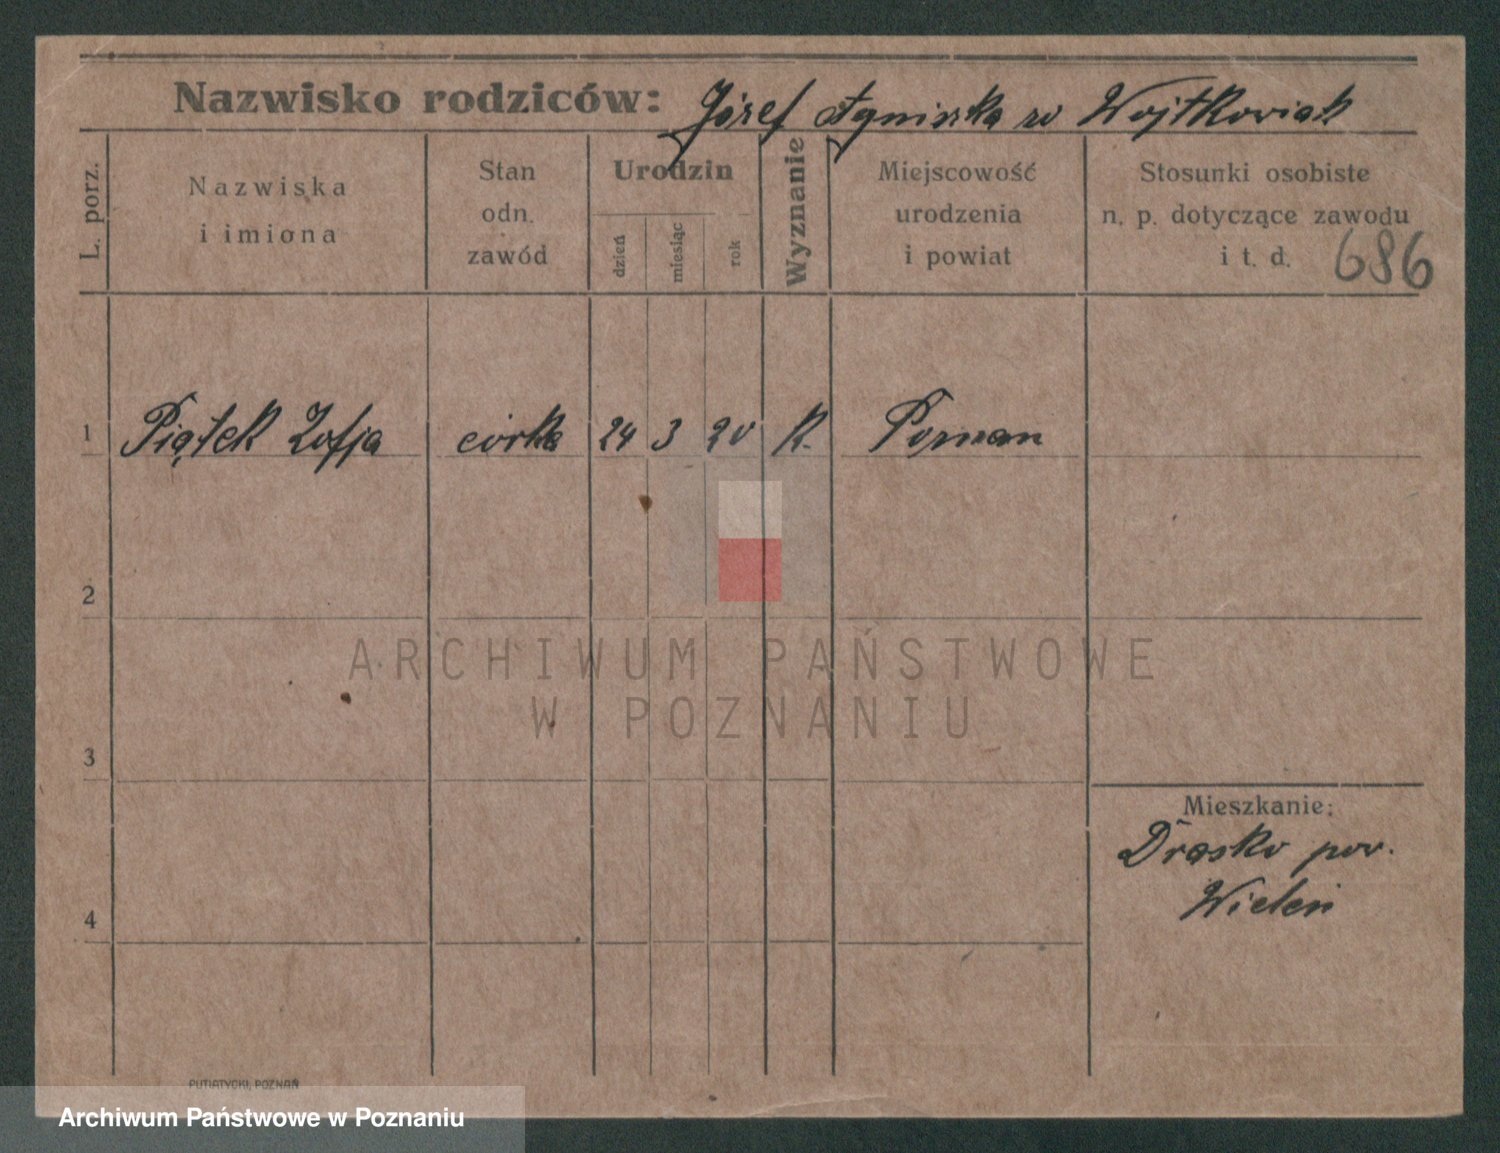 Nazwisko rodziców: Józef Agniszka zd Wojtkowiak
L. porz.
Nazwiska
i imiona
Stan
odn.
zawód
Urodzin
dzień
miesiąc
rok
Wyznanie
Miejscowość
urodzenia
i powiat
Stosunki osobiste
n. p. dotyczące zawodu
i t. d.
686
1 Piątek Zofja córka 24 3 20 R. Poznan
2
ARCHIWUM PAŃSTWOWE
W POZNANIU
3
Mieszkanie:
Drasko pow.
Wieleń
4
PUTIATYCKI, POZNAŃ
Archiwum Państwowe w Poznaniu